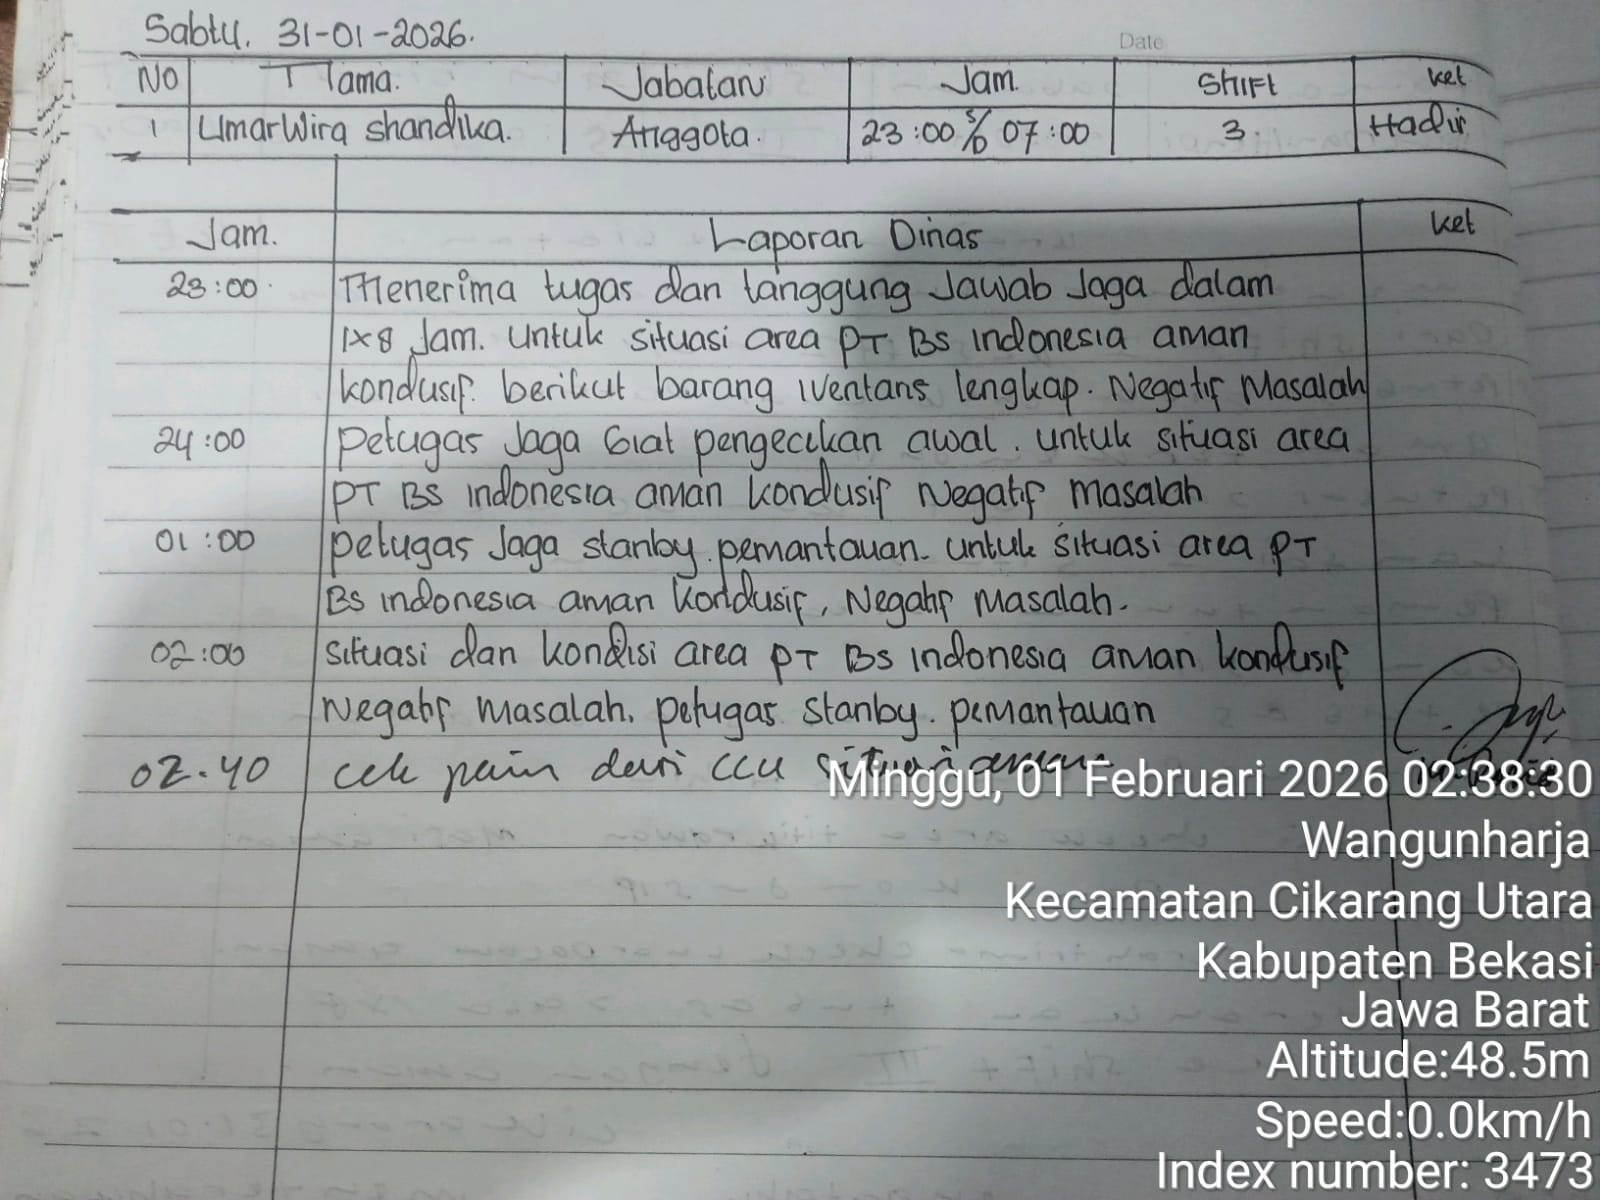 Sabtu, 31-01-2026.
Date
No Nama. Jabatan Jam. SHIFT ket
1 Umar Wira shandika. Anggota. 23:00 s/d 07:00 3. Hadir
Jam. Laporan Dinas ket
23:00. Menerima tugas dan tanggung Jawab Jaga dalam
1x8 Jam. Untuk situasi area PT BS Indonesia aman
kondusif. berikut barang iventaris lengkap. Negatif Masalah
24:00 petugas Jaga Giat pengecikan awal. untuk situasi area
PT BS Indonesia aman kondusif Negatif masalah
01:00 petugas Jaga stanby. pemantauan. untuk situasi area PT
BS Indonesia aman kondusif, Negatif masalah.
02:00 situasi dan kondisi area PT BS Indonesia aman kondusif
Negatif masalah. petugas stanby. pemantauan
02.40 cek poin dari CCU situasi aman
Minggu, 01 Februari 2026 02:38:30
Wangunharja
Kecamatan Cikarang Utara
Kabupaten Bekasi
Jawa Barat
Altitude:48.5m
Speed:0.0km/h
Index number: 3473